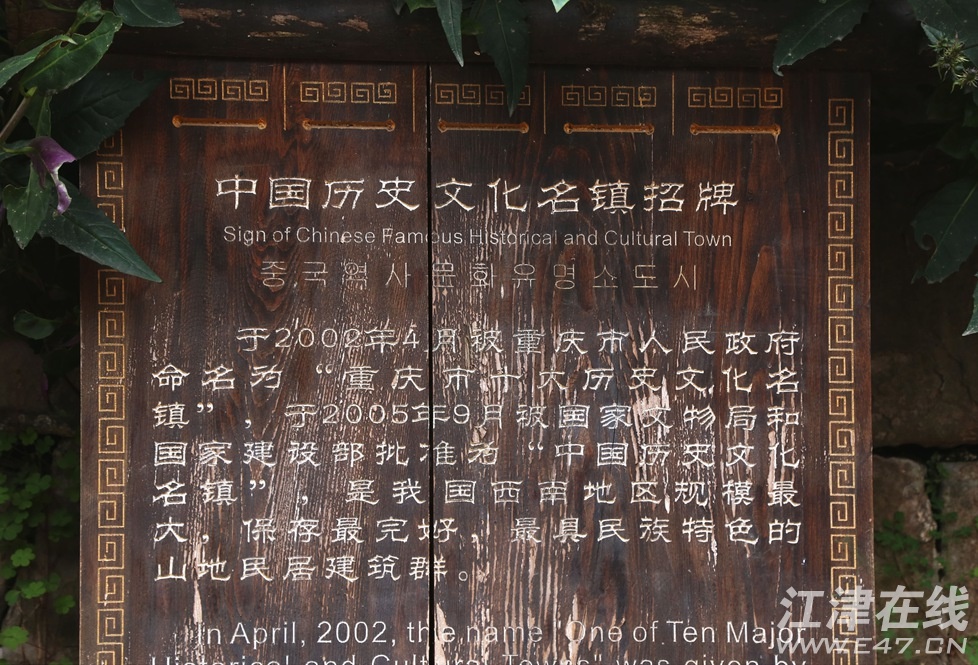 中国历史文化名镇招牌
Sign of Chinese Famous Historical and Cultural Town
중국역사문화유명소도시
于2002年4月被重庆市人民政府
命名为“重庆市十大历史文化名
镇”,于2005年9月被国家文物局和
国家建设部批准为“中国历史文化
名镇”,是我国西南地区规模最
大,保存最完好,最具民族特色的
山地民居建筑群。
In April, 2002, the name "One of Ten Major
Historical and Cultural Towns" was given by
江津在线
WWW.E47.CN